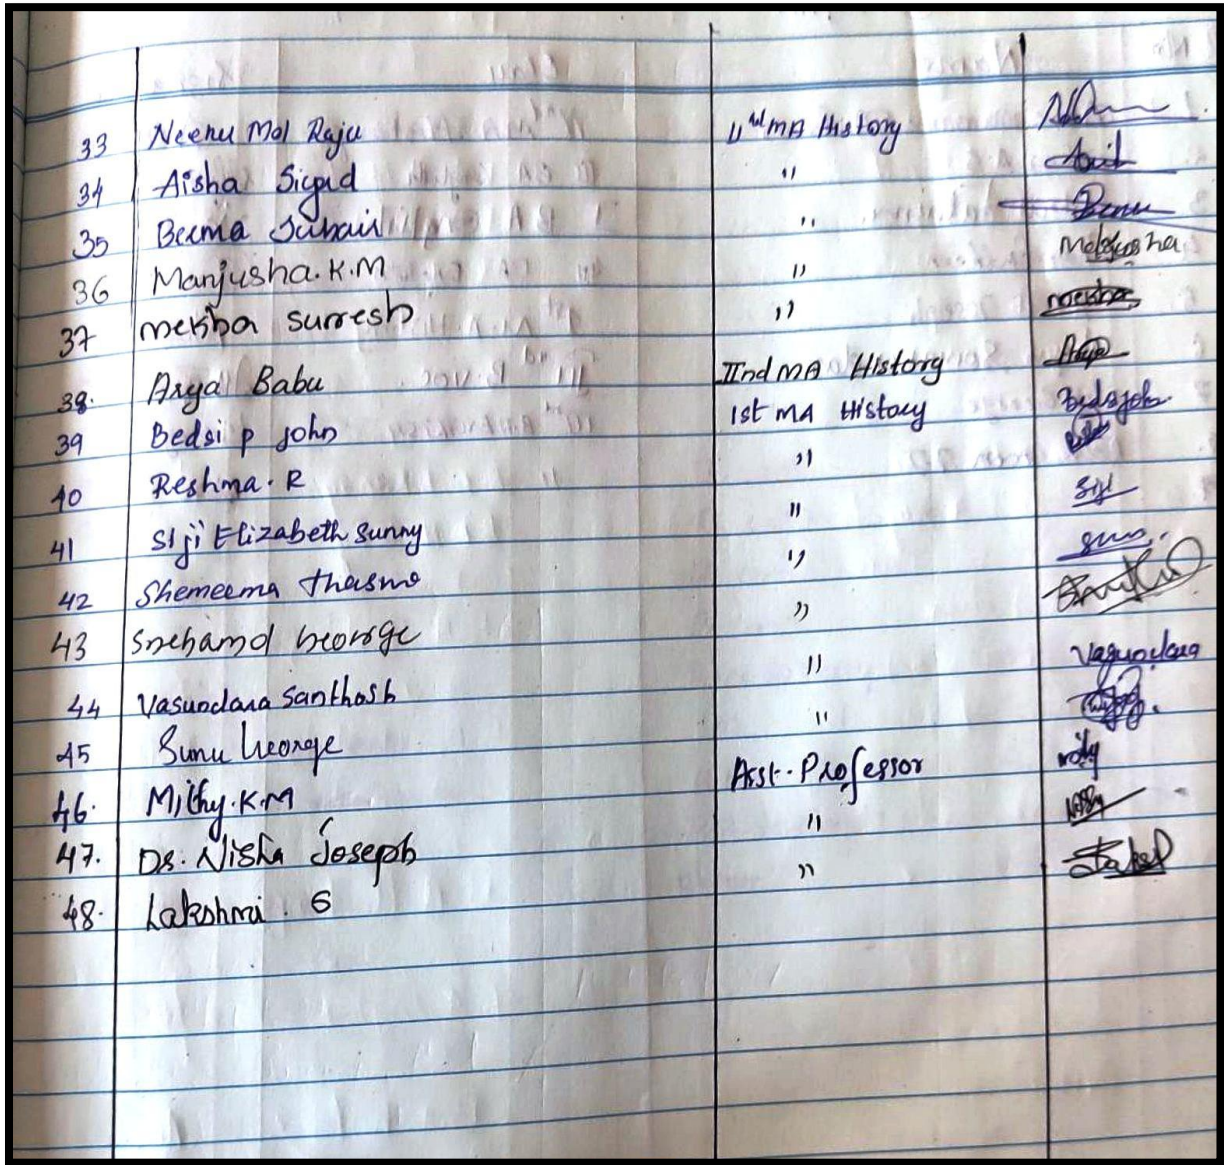 33 Neenu Mol Raju IInd MA History
34 Aisha Siyad "
35 Beema Jubair " Beema
36 Manjusha.K.M " Manjusha
37 mekha surresh " mekha
38. Arya Babu IInd MA History Arya
39 Bedsi p john 1st MA History Bedsijohn
40 Reshma. R "
41 Siji Elizabeth Sunny " Siji
42 Shemeema thasmo "
43 Snehamol George "
44 Vasundara Santhosh " Vasundara
45 Sunu George "
46. Mithy.K.M Asst. Professor
47. Dr. Nisha Joseph "
48. Lakshmi. G "